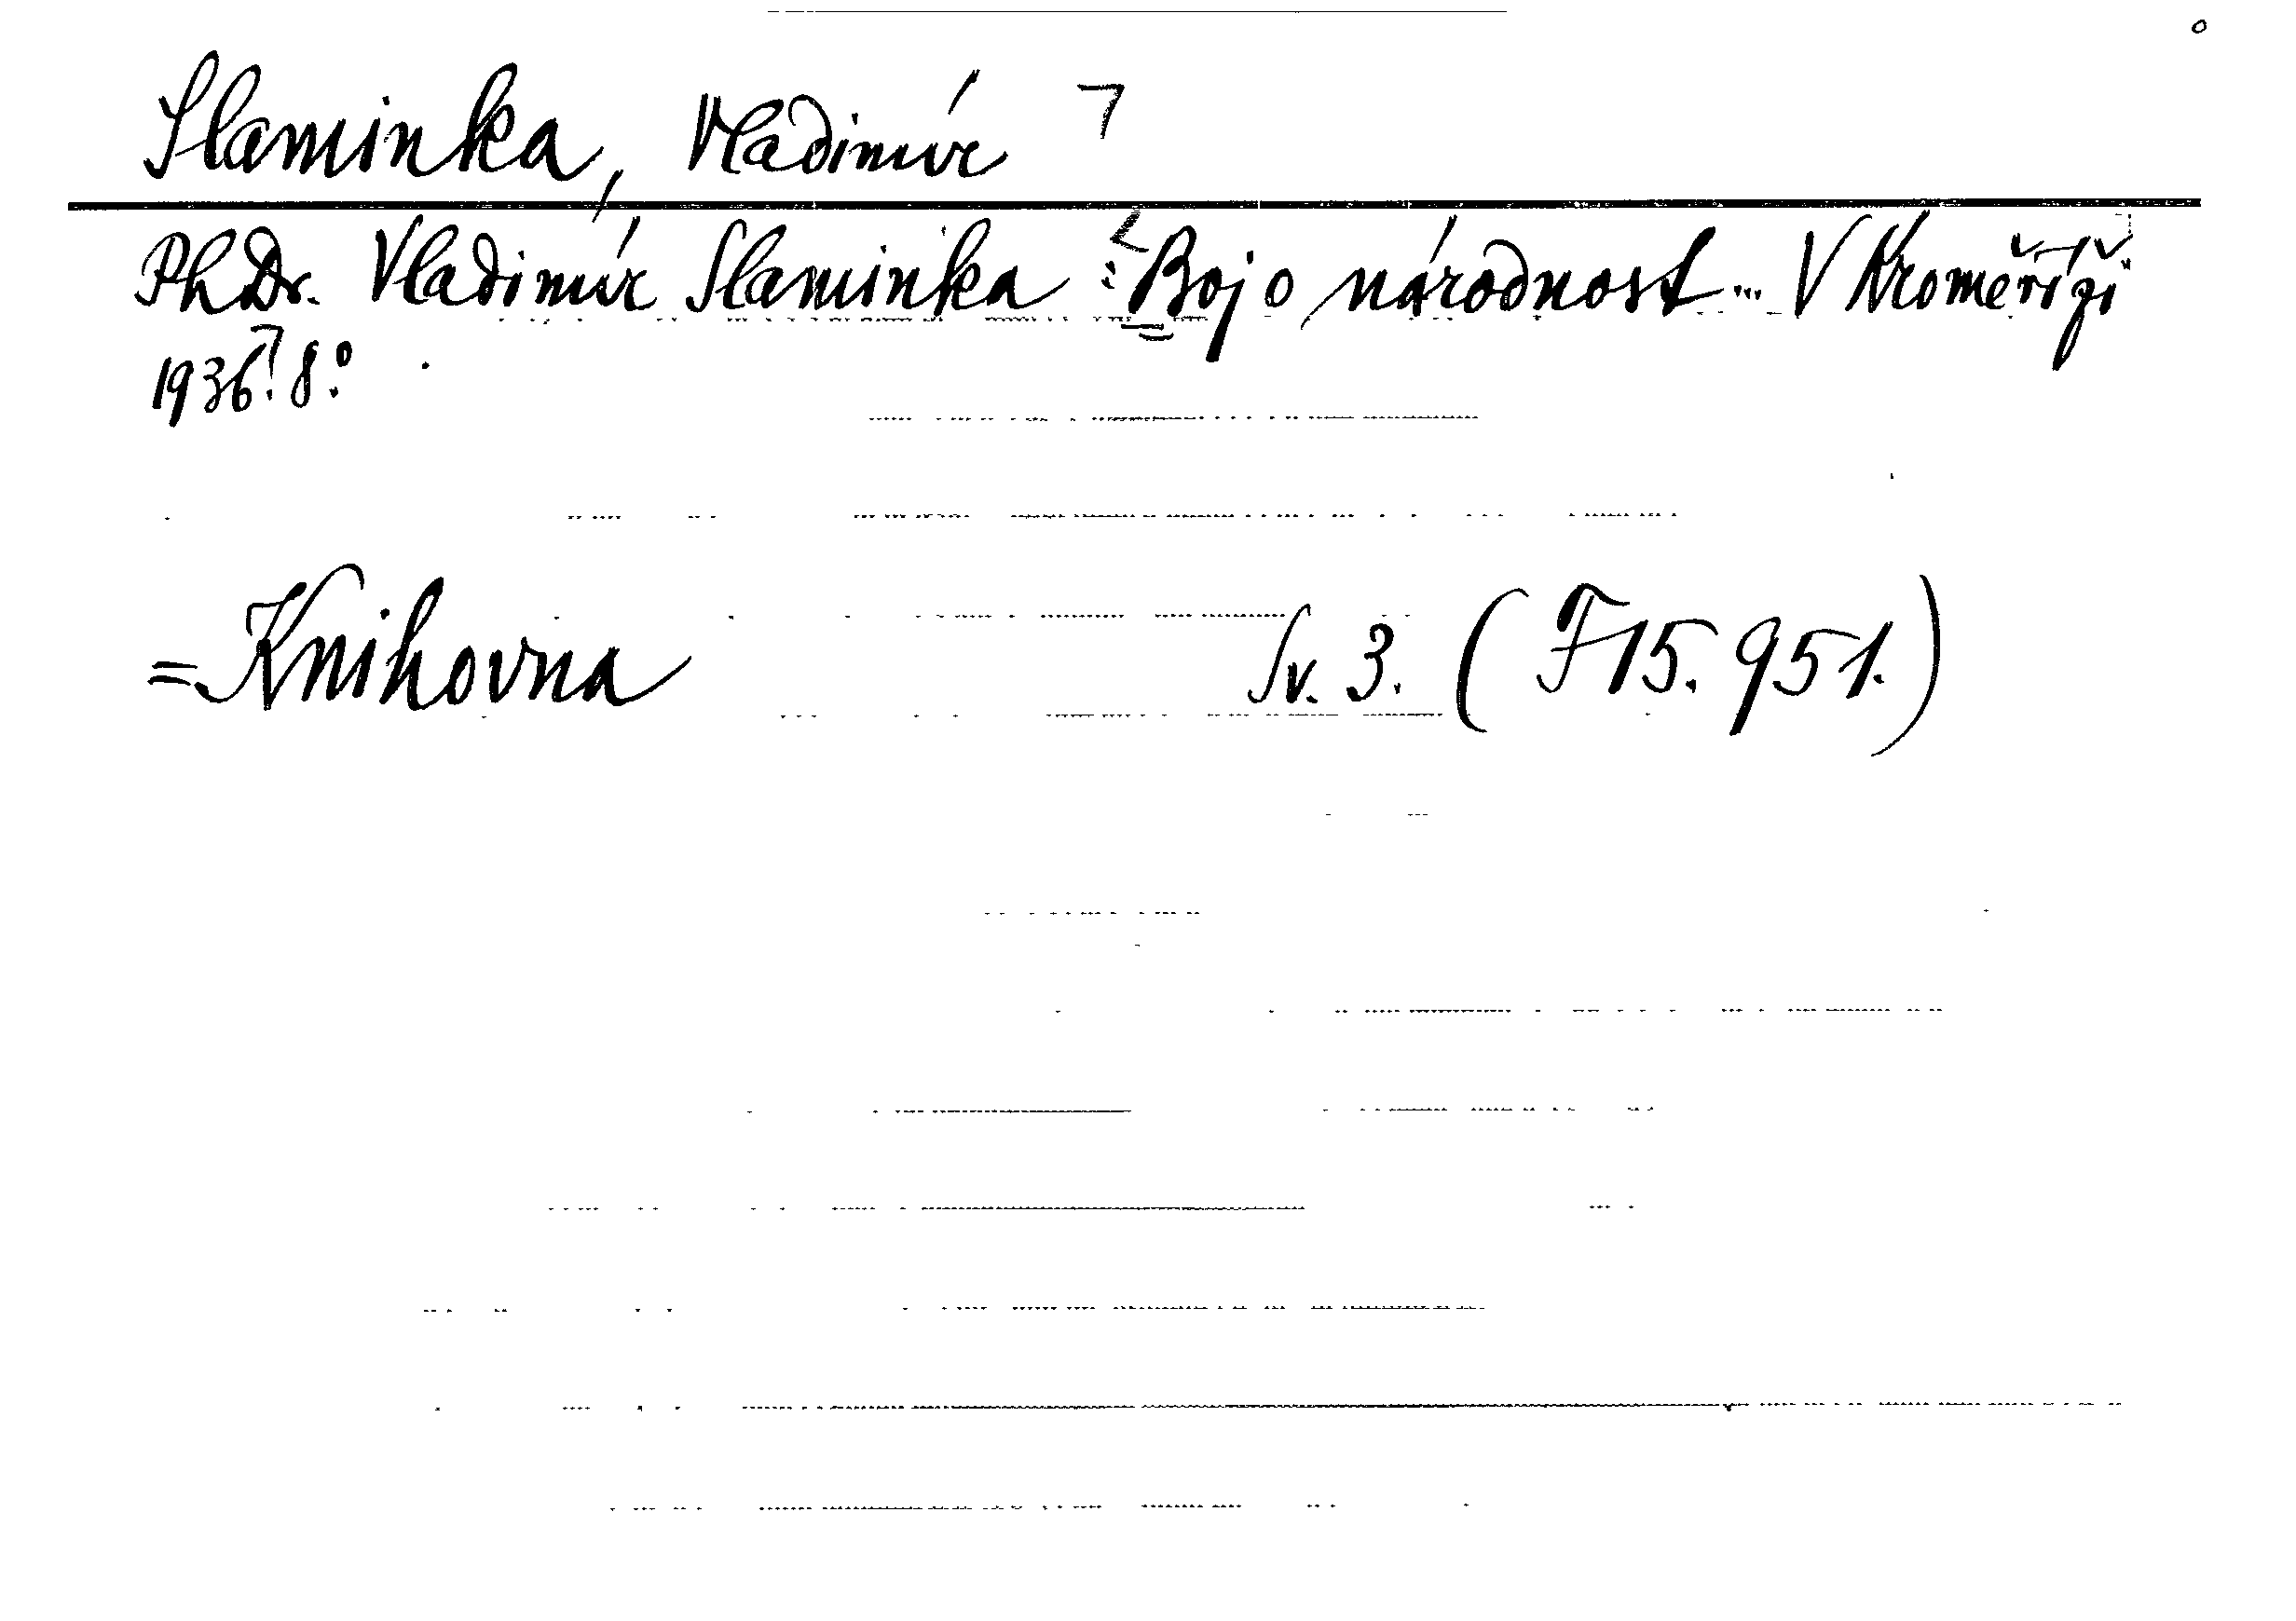 Slaminka, Vladimír
PhDr. Vladimír Slaminka: Boj o národnost... V Kroměříži
1936. 8°.
= Knihovna Sv. 3. (F 15.951.)